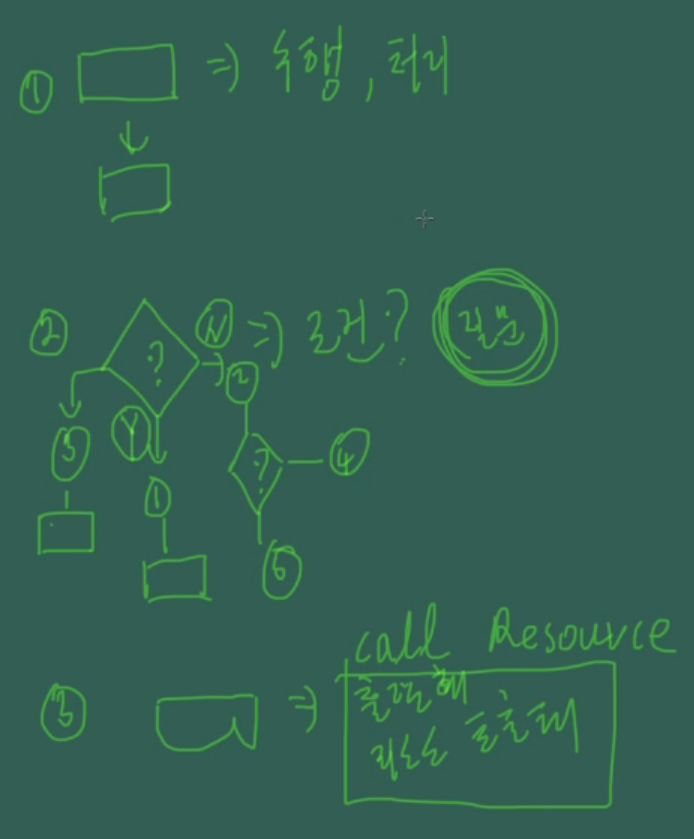 ① ⇒ 수행, 처리
② ? Ⓝ ⇒ 조건? 질문
③ Ⓨ ② 
① ? ④
⑥
③ ⇒ call Resource
출력해
리소스 호출해